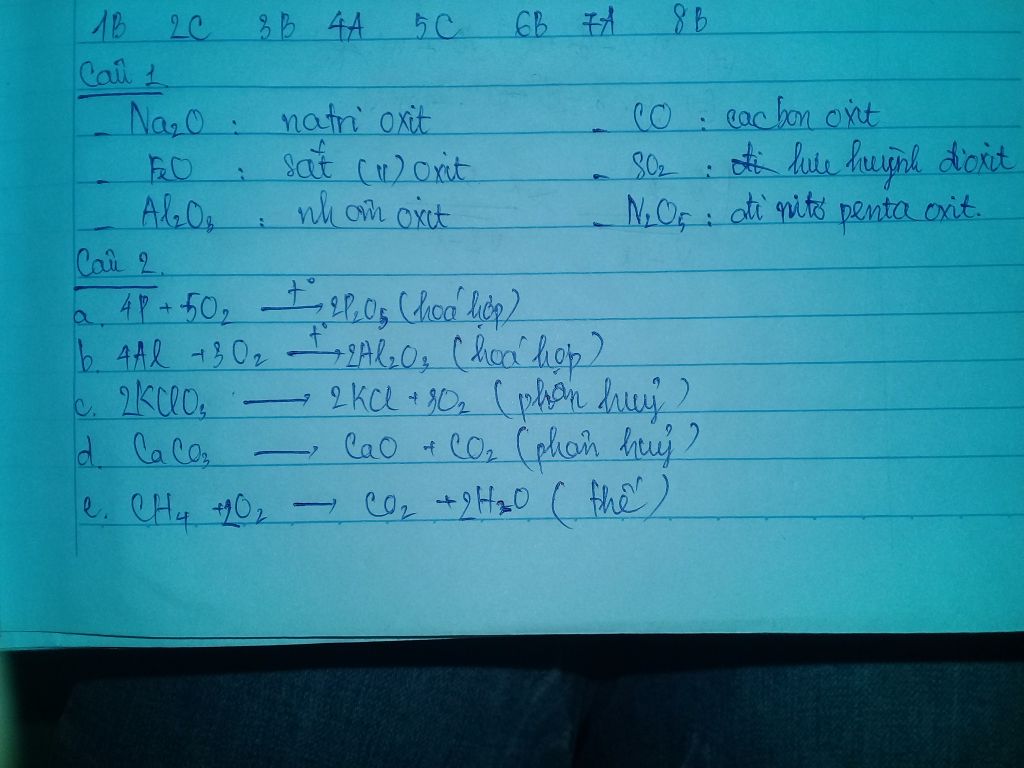 1B 2C 3B 4A 5C 6B 7A 8B
Câu 1
- Na2O : natri oxit - CO : cacbon oxit
- FeO : sắt (II) oxit - SO2 : lưu huỳnh đioxit
- Al2O3 : nhôm oxit - N2O5 : đi nitơ penta oxit.
Câu 2.
a. 4P + 5O2 —t°→ 2P2O5 (hoá hợp)
b. 4Al + 3O2 —t°→ 2Al2O3 (hoá hợp)
c. 2KClO3 → 2KCl + 3O2 (phân huỷ)
d. CaCO3 → CaO + CO2 (phân huỷ)
e. CH4 + 2O2 → CO2 + 2H2O (thế)